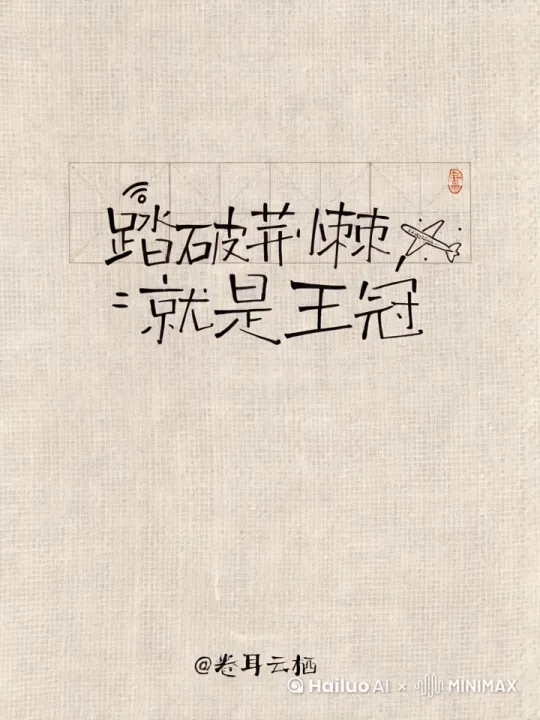 踏破荆棘
就是王冠
@卷耳云栖
Hailuo AI × MINIMAX